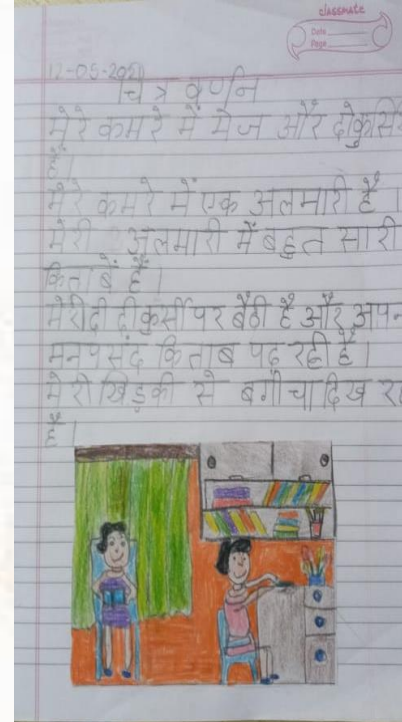 classmate
Date
Page
12-05-2021
चित्र वर्णन
मेरे कमरे में मेज और दो कुर्सि
हैं।
मेरे कमरे में एक अलमारी है ।
मेरी अलमारी में बहुत सारी
किताबें हैं।
मेरी दीदी कुर्सी पर बैठी है और अपन
मनपसंद किताब पढ़ रही है।
मेरी खिड़की से बगीचा दिख रह
है।